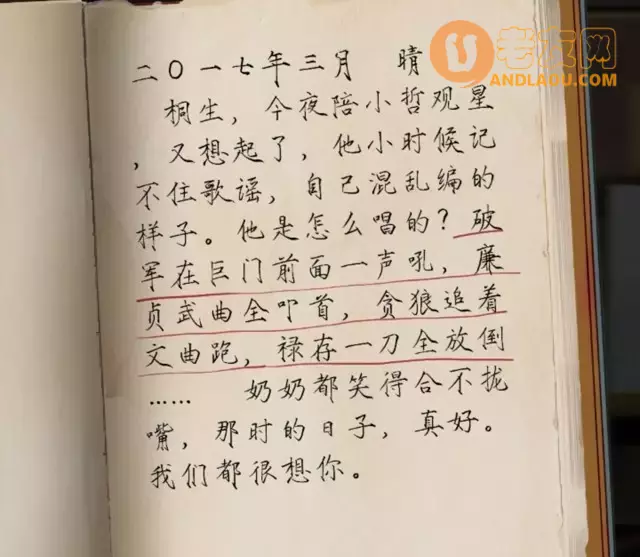 二〇一七年三月 晴
桐生，今夜陪小哲观星
，又想起了，他小时候记
不住歌谣，自己混乱编的
样子。他是怎么唱的？破
军在巨门前面一声吼，廉
贞武曲全叩首，贪狼追着
文曲跑，禄存一刀全放倒
…… 奶奶都笑得合不拢
嘴，那时的日子，真好。
我们都很想你。
老板网
ANDLADU.COM